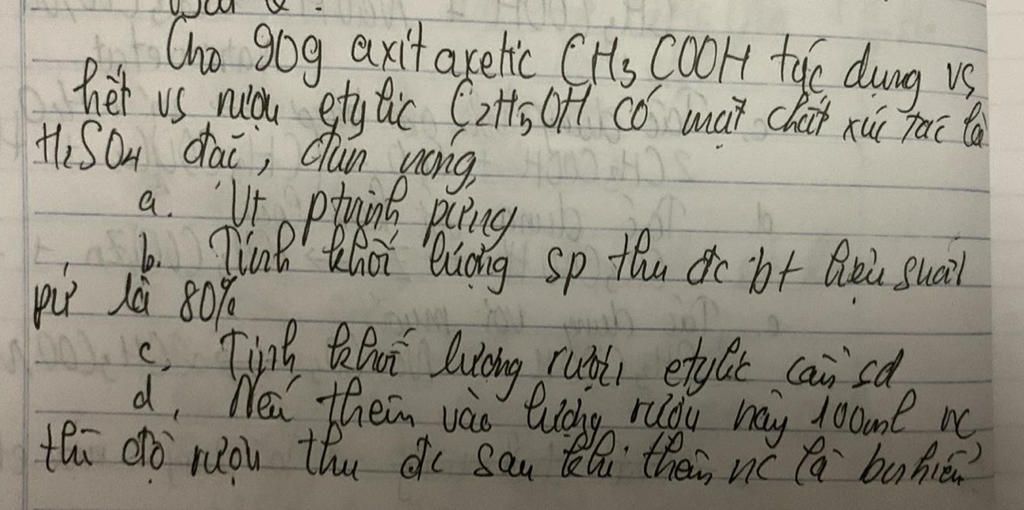 Cho 90g axit axetic CH3COOH tác dụng vs
hết vs rượu etylic C2H5OH có mặt chất xúc tác là
H2SO4 đặc, đun nóng,
a. Vt ptrình pứng
b. Tính khối lượng sp thu đc bt hiệu suất
pứ là 80%
c, Tính khối lượng rượu etylic cần sd
d, Nếu thêm vào lượng rượu này 100ml nc
thì độ rượu thu đc sau khi thêm nc là bnhiêu?